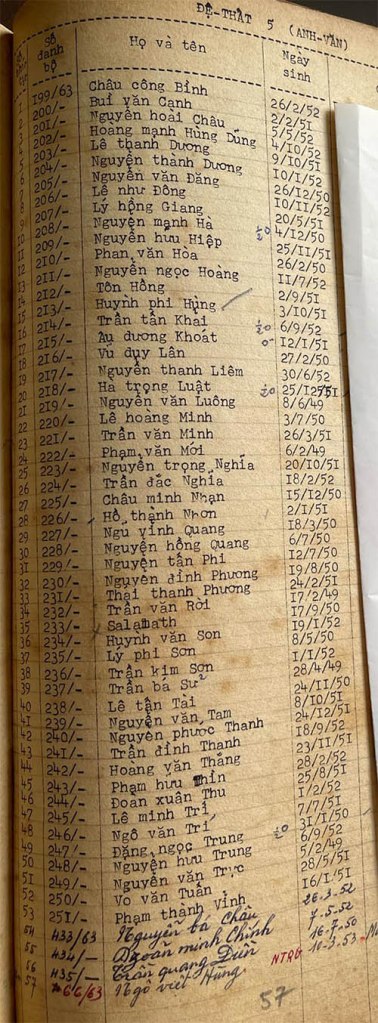 ĐỆ-THẤT 5 (ANH-VĂN)
Số danh bộ Họ và tên Ngày sinh
1 199/63 Châu công Bỉnh 26/2/52
2 200/- Bui văn Cạnh 2/2/51
3 201/- Nguyễn hoài Châu 5/5/52
4 202/- Hoàng mạnh Hùng Dũng 4/10/52
5 203/- Lê thanh Dương 9/10/51
6 204/- Nguyễn thành Dương 10/1/52
7 205/- Nguyễn văn Đăng 26/12/50
8 206/- Lê như Đông 10/11/52
9 207/- Lý hồng Giang 20/5/51
10 208/- Nguyễn mạnh Hà 4/12/50
11 209/- Nguyễn hưu Hiệp 25/11/51
12 210/- Phan văn Hòa 26/2/50
13 211/- Nguyễn ngọc Hoàng 11/7/52
14 212/- Tôn Hồng 2/9/51
15 213/- Huỳnh phi Hùng 3/10/51
16 214/- Trần tấn Khải 6/9/52
17 215/- Âu dương Khoát 12/1/51
18 216/- Vu duy Lân 27/2/50
19 217/- Nguyễn thanh Liêm 30/6/52
20 218/- Hà trọng Luật 25/12/51
21 219/- Nguyễn văn Luông 8/6/49
22 220/- Lê hoàng Minh 3/7/50
23 221/- Trần văn Minh 26/3/51
24 222/- Phạm văn Mới 6/2/49
25 223/- Nguyễn trọng Nghĩa 20/10/51
26 224/- Trần đắc Nghĩa 18/2/52
27 225/- Châu minh Nhạn 15/12/50
28 226/- Hồ thành Nhơn 2/1/51
29 227/- Ngu vinh Quang 18/3/50
30 228/- Nguyễn hồng Quang 6/7/50
31 229/- Nguyễn tấn Phi 12/7/50
32 230/- Nguyễn đình Phương 19/8/50
33 231/- Thái thanh Phương 24/2/51
34 232/- Trần văn Rời 17/2/49
35 233/- Salamath 17/9/50
36 234/- Huỳnh văn Son 19/1/52
37 235/- Lý phi Sơn 8/5/50
38 236/- Trần kim Sơn 1/1/52
39 237/- Trần bá Sử 28/4/49
40 238/- Lê tấn Tài 24/11/50
41 239/- Nguyễn văn Tam 8/10/51
42 240/- Nguyễn phước Thanh 24/12/51
43 241/- Trần đình Thanh 18/9/52
44 242/- Hoàng văn Thắng 23/11/51
45 243/- Phạm hưu Thìn 28/2/52
46 244/- Đoan xuân Thu 25/8/51
47 245/- Lê minh Trí 1/2/52
48 246/- Ngô văn Trí 7/7/51
49 247/- Đặng ngọc Trung 31/1/50
50 248/- Nguyễn hưu Trung 6/9/52
51 249/- Nguyễn văn Trực 5/2/49
52 250/- Vo văn Tuấn 28/5/51
53 251/- Phạm thành Vinh 16/1/51
54 433/63 Nguyễn bá Châu 26.3.52
55 434/- Đoàn minh Chính 7.5.52
56 435/- Trần quang Diễn 16.7.50
57 66/63 Ngô viết Hùng NTRG 10-3.53
57